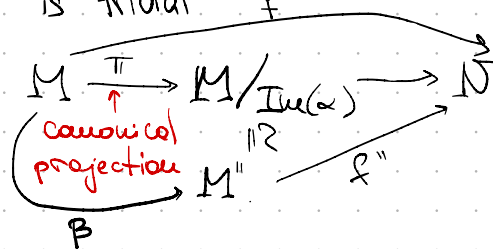 is trivial f
π
M → M/Im(α) → N
canonical
projection
≅
M'' f''
β